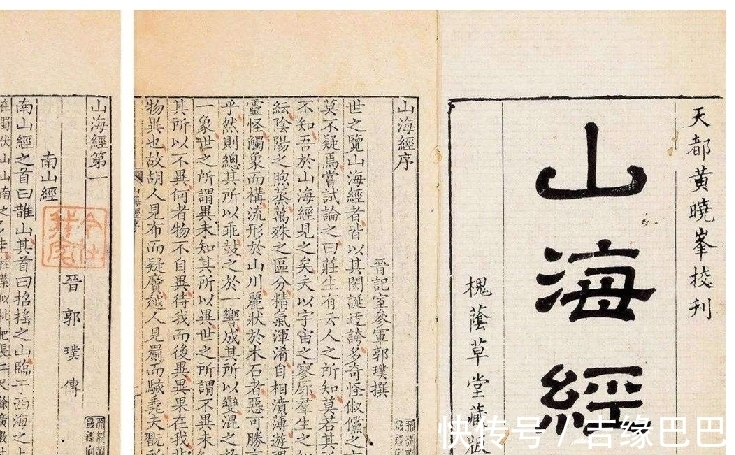 天都黄曉峯挍刊
山海經
槐蔭草堂藏版
山海經序
晉記室參軍郭璞撰
世之覽山海經者皆以其閎誕迂誇多奇怪俶儻之
莫不疑焉嘗試論之曰莊生有云人之所知莫若其
不知吾於山海經見之矣夫以宇宙之寥廓羣生之
紜陰陽之煦蒸萬殊之區分精氣渾淆自相濆薄遊
靈怪觸象而構流形於山川麗狀於木石者惡可勝
乎然則總其所以乖鼓之於一響成其所以變混之
一象世之所謂異未知其所以異世之所謂不異未
其所以不異何者物不自異待我而後異異果在我
物異也故胡人見布而疑黂越人見罽而駭毳夫翫
山海經第一
南山經
晉郭璞傳
南山經之首曰䧿山其首曰招搖之山臨于西海之
快传号/吉缘巴巴